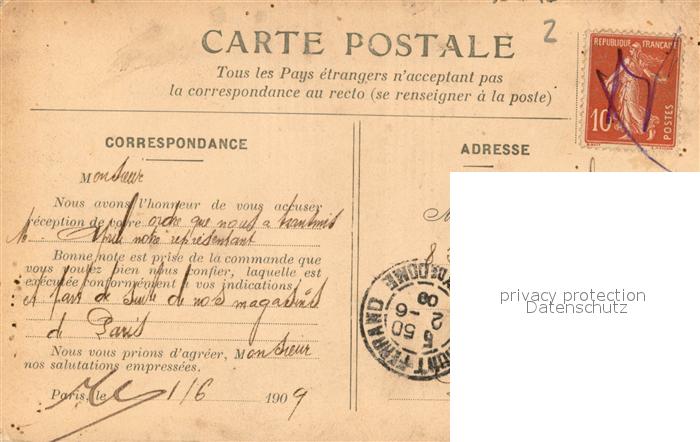 2
CARTE POSTALE
Tous les Pays étrangers n'acceptant pas
la correspondance au recto (se renseigner à la poste)
REPUBLIQUE FRANÇAISE
10
POSTES
CORRESPONDANCE
ADRESSE
Monsieur
Nous avons l'honneur de vous accuser
réception de votre ordre que nous a transmis
M. notre représentant
Bonne note est prise de la commande que
vous voulez bien nous confier, laquelle est
exécutée conformément à vos indications
et part de suite de nos magasins
de Paris
Nous vous prions d'agréer, Monsieur
nos salutations empressées.
Paris, le 1/6 1909
M
8
FERRAND
DE DOME
5 50
2 -6
09
privacy protection
Datenschutz